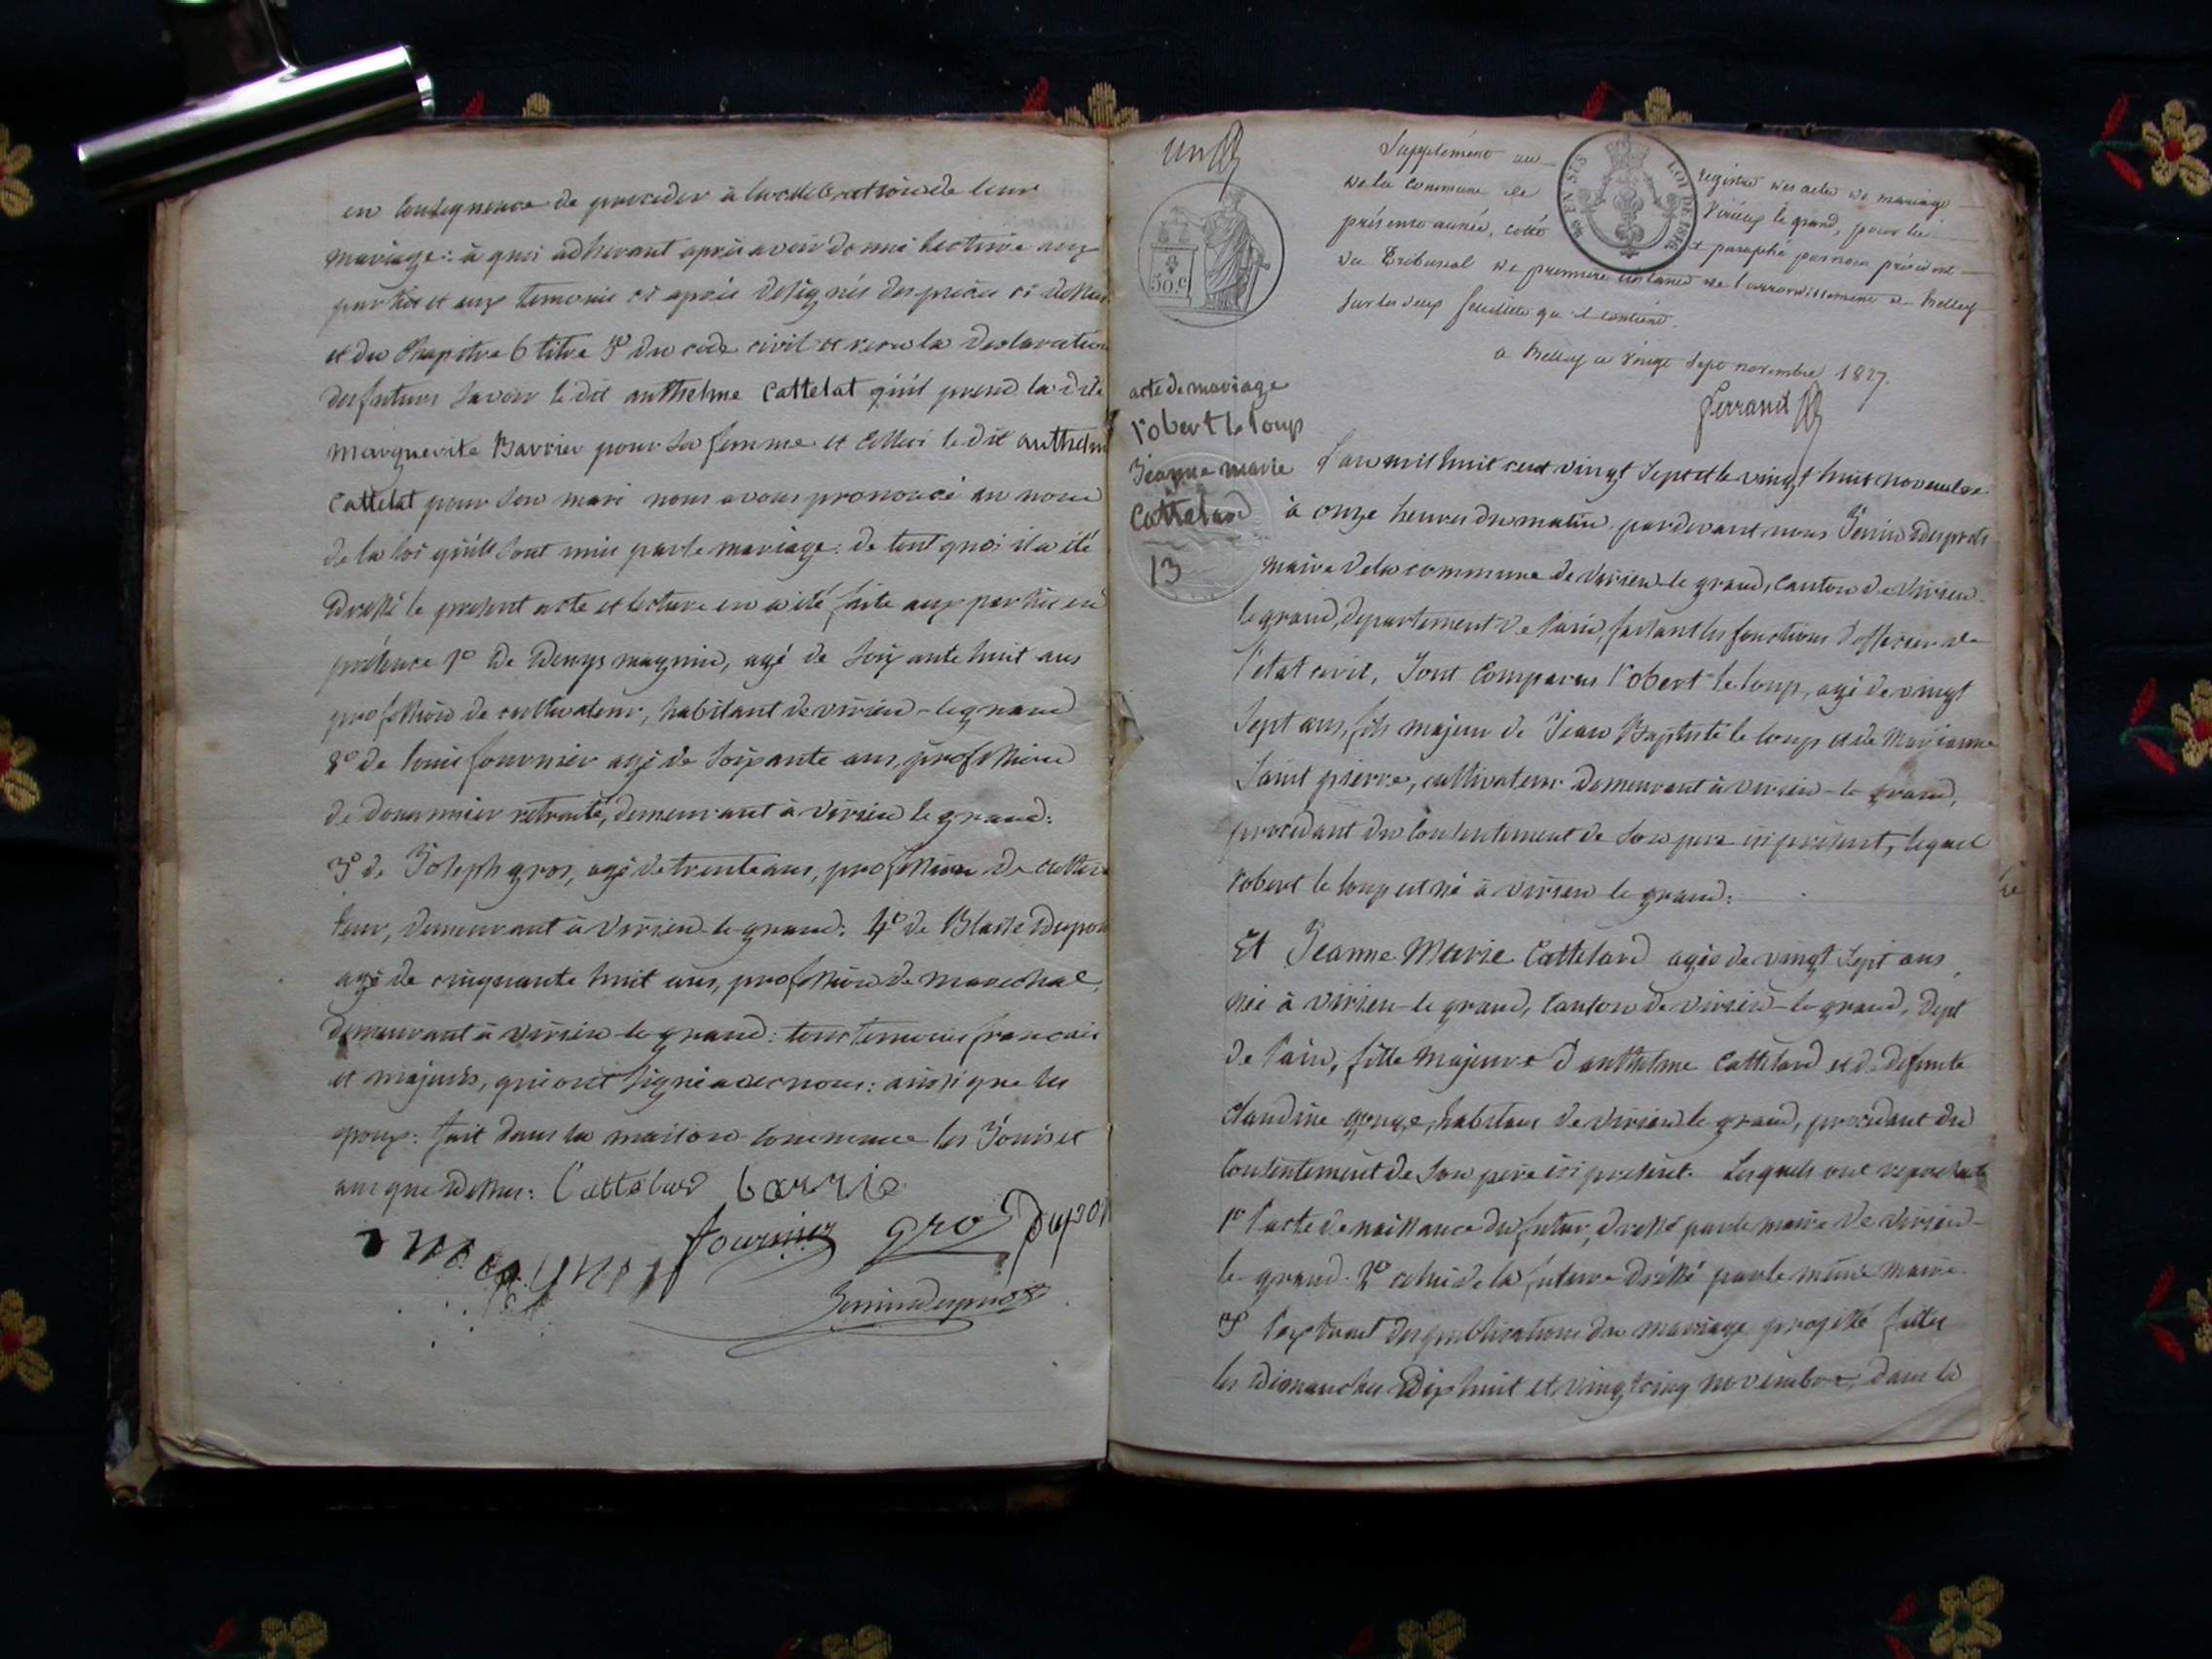 en consequence de proceder à la celebration de leur
mariage: à quoi adherant après avoir donné lecture aux
parties et aux temoins ci après designés des pieces ci dessus
et du Chapitre 6 titre 5e du code civil et recu la declaration
des futurs savoir le dit anthelme Cattelat qu'il prend la dite
marguerite Barrier pour sa femme et celleci le dit anthelme
Cattelat pour son mari nous avons prononcé au nom
de la loi qu'ils sont unis par le mariage: de tout quoi il a été
dressé le present acte et lecture en a été faite aux parties en
présence 1o de Denys magnin, agé de soixante huit ans
profession de cultivateur, habitant de virieu-legrand
2o de louis fournier agé de soixante ans, profession
de douannier retraité, demeurant à virieu le grand:
3o de Joseph gros, agé de trente ans, profession de cultiva
teur, demeurant à virieu-le-grand: 4o de Blaise Dupon
agé de cinquante huit ans, profession de marechal,
demeurant à virieu-le-grand: tous temoins francais
et majeurs, qui ont signé avec nous: ainsi que les
epoux: fait dans la maison commune les Jour et
an que dessus: Cattelard barrie
magnin fournier gros Dupon
un
Supplément au registre des actes de mariage
de la Commune de Virieux le grand, pour la
présente année, cotté et paraphé par nous président
du Tribunal de première instance de l'arrondissement de Belley
sur les deux feuilles qu'il contient.
a Belley ce vingt sept novembre 1827.
Ferrand
50.c
EN SUS
LOI DE 1816
acte de mariage
robert le loup
Jeanne marie
Cattelard
13
L'an mil huit cent vingt sept et le vingt huit novembre
à onze heures du matin, pardevant nous
maire de la commune de virieu-le grand, Canton de Virieu-
le grand, departement de l'ain, faisant les fonctions d'officier de
l'etat civil, sont Comparus robert le loup, agé de vingt
sept ans, fils majeur de Jean Baptiste le loup et de Marianne
Saint pierre, cultivateur demeurant à virieu-le grand,
procedant du consentement de son pere ici présent, lequel
robert le loup est né à virieu le grand:
Et Jeanne Marie Cattelard agée de vingt sept ans,
née à virieu-le grand, Canton de virieu-le grand, dept
de l'ain, fille majeure d'anthelme Cattelard et de defunte
claudine, habitans de virieu le grand, procedant du
consentement de son pere ici present. Lesquels ont
1o l'acte de naissance du futur, dressé par le maire de virieu-
le grand. 2o celui de la future dréssé par le même maire
3o l'extrait des publications du mariage projetté faites
les dimanches dix huit et vingt cinq novembre, dans la